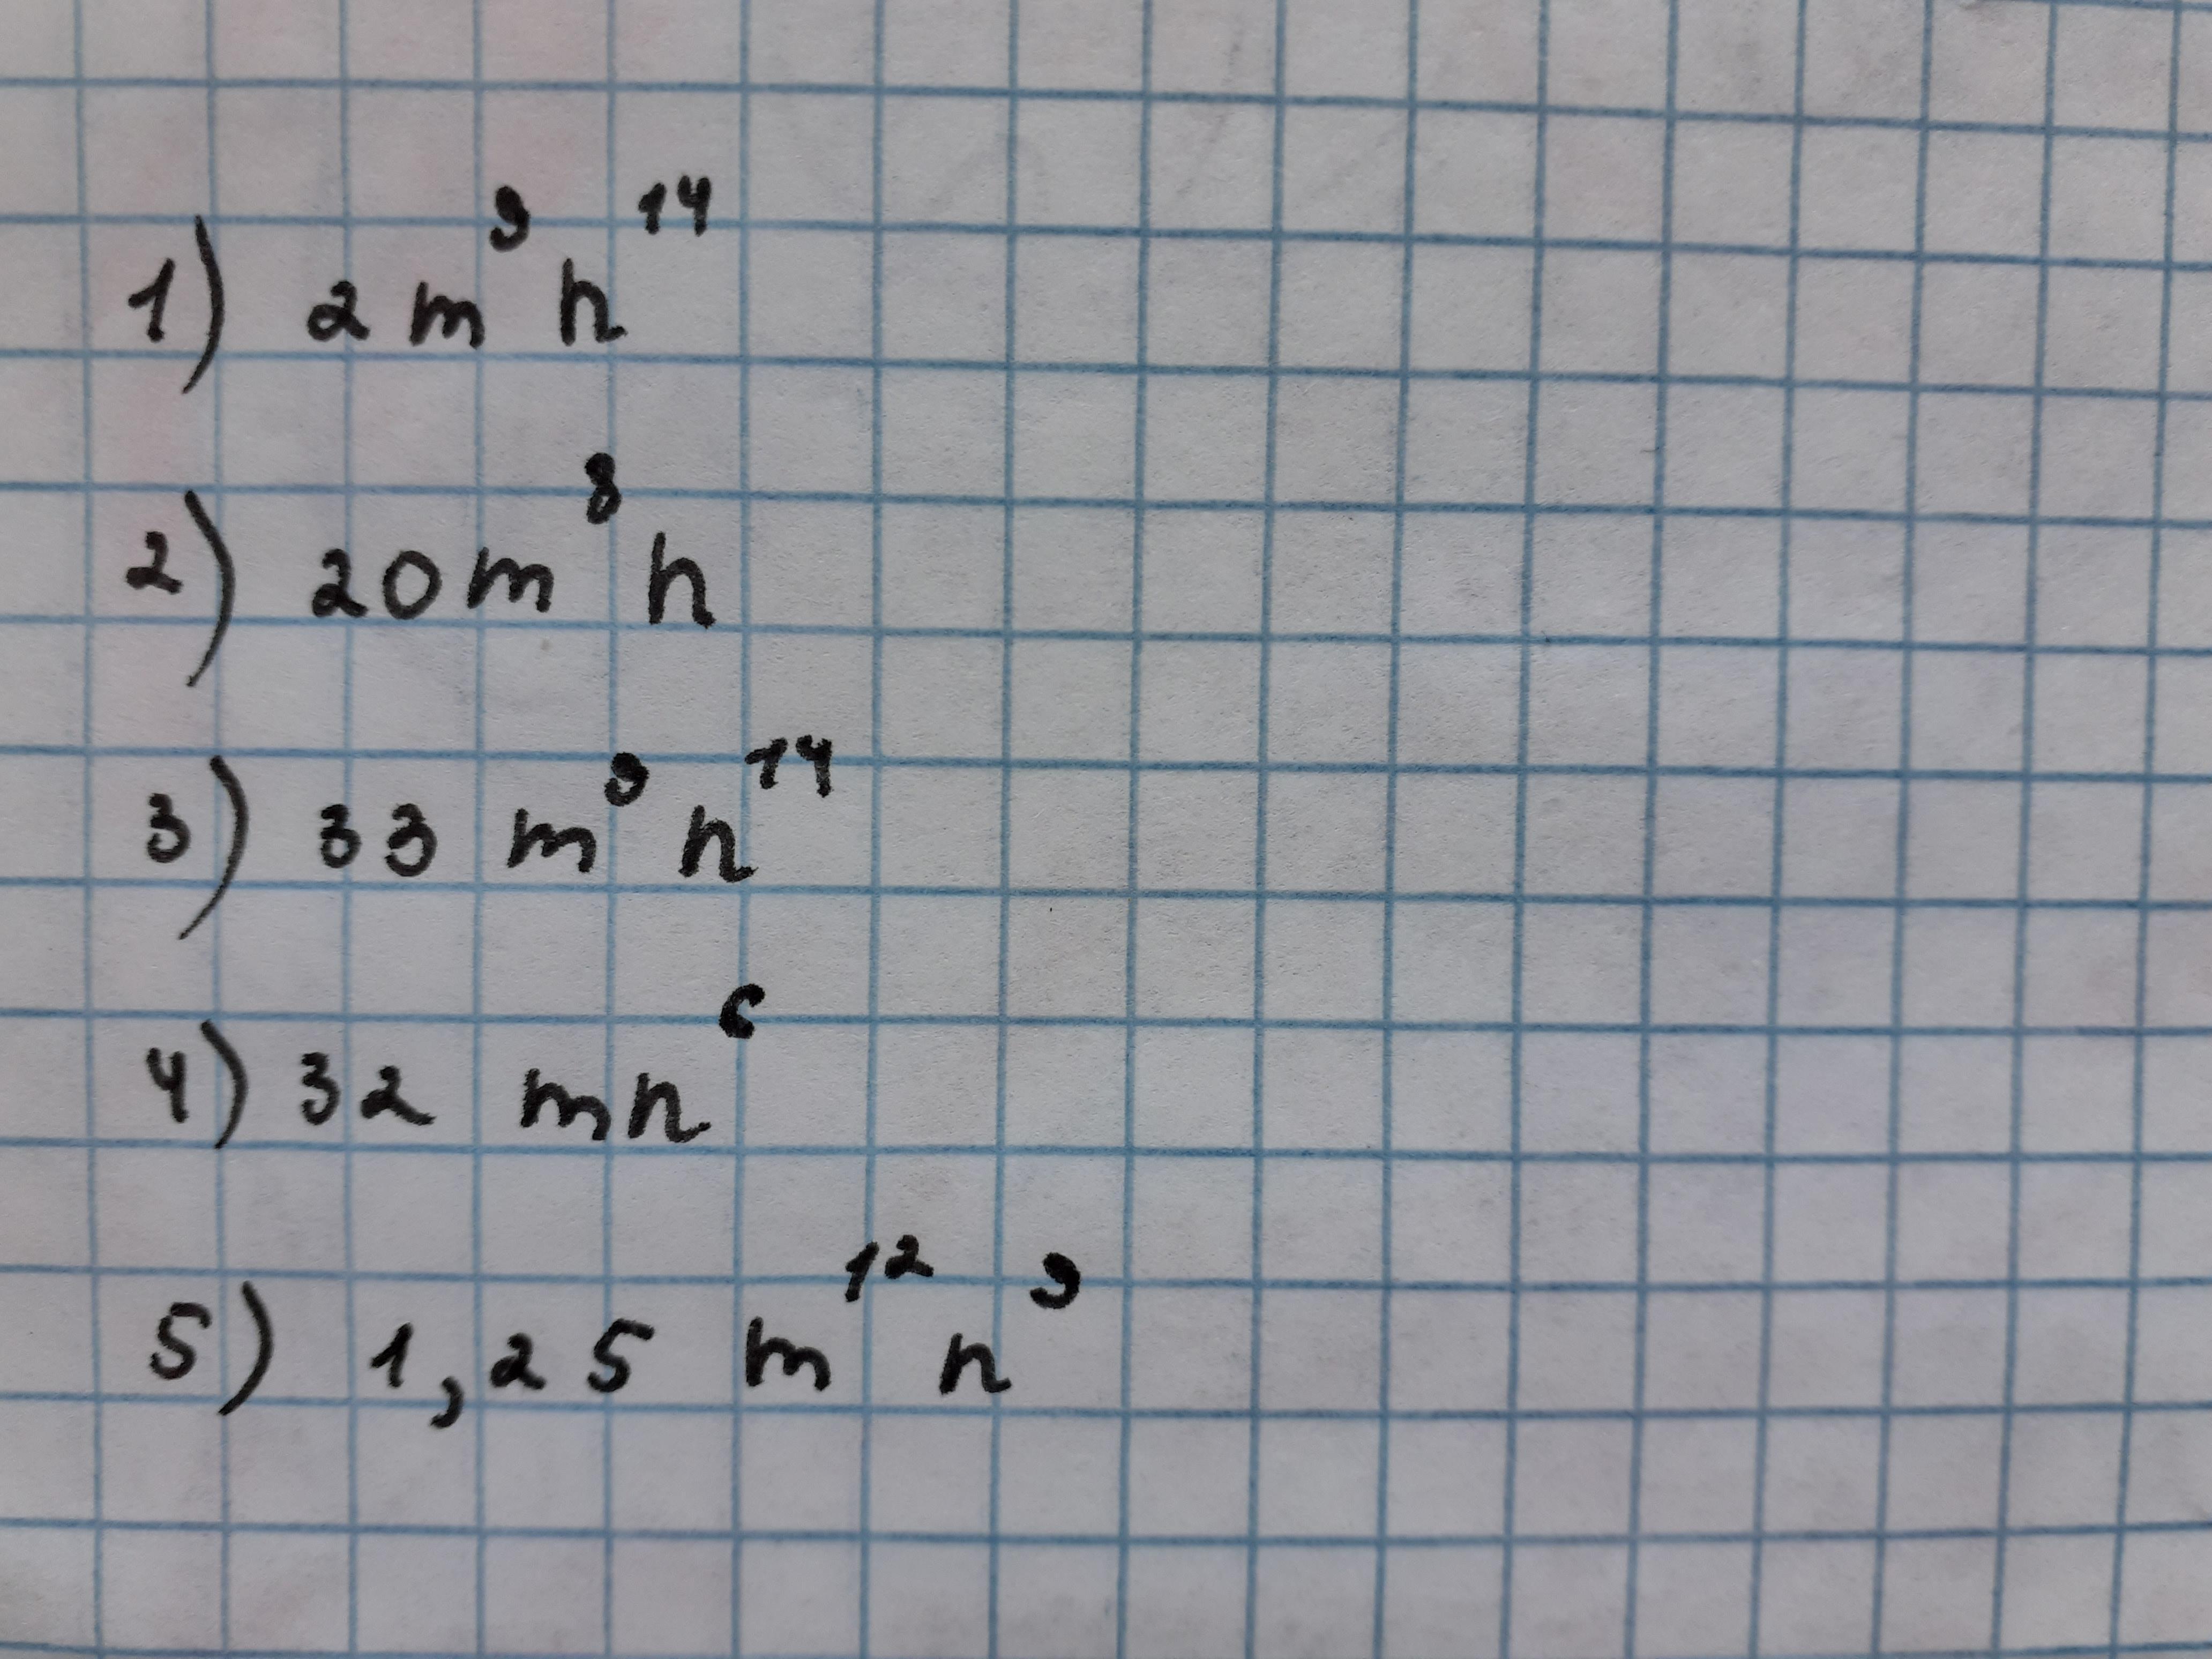 1) 2m⁹n¹⁴
2) 20m⁸n
3) 33 m⁹n¹⁴
4) 32 mn⁶
5) 1,25 m¹²n⁹